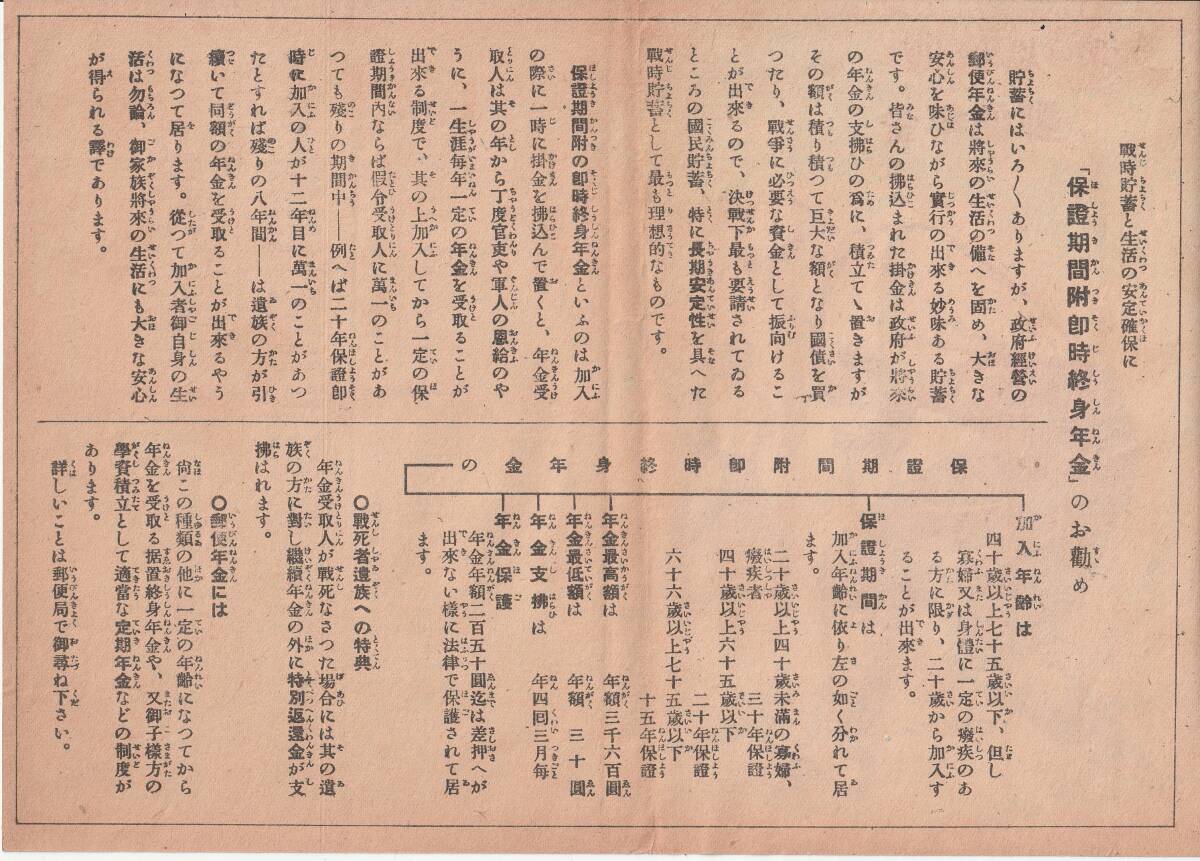 戰時貯蓄と生活の安定確保に
「保證期間附卽時終身年金」のお勸め
貯蓄にはいろ〱ありますが、政府經營の
郵便年金は將來の生活の備へを固め、大きな
安心を味ひながら實行の出來る妙味ある貯蓄
です。皆さんの拂込まれた掛金は政府が將來
の年金の支拂ひの爲に、積立てゝ置きますが
その額は積り積つて巨大な額となり國債を買
つたり、戰爭に必要な資金として振向けるこ
とが出來るので、決戰下最も要請されてゐる
ところの國民貯蓄、特に長期安定性を具へた
戰時貯蓄として最も理想的なものです。
保證期間附の卽時終身年金といふのは加入
の際に一時に掛金を拂込んで置くと、年金受
取人は其の年から丁度官吏や軍人の恩給のや
うに、一生涯每年一定の年金を受取ることが
出來る制度で、其の上加入してから一定の保
證期間內ならば假令受取人に萬一のことがあ
つても殘りの期間中――例へば二十年保證卽
時に加入の人が十二年目に萬一のことがあつ
たとすれば殘りの八年間――は遺族の方が引
續いて同額の年金を受取ることが出來るやう
になつて居ります。從つて加入者御自身の生
活は勿論、御家族將來の生活にも大きな安心
が得られる譯であります。
保證期間附卽時終身年金の
加入年齡は
四十歲以上七十五歲以下、但し
寡婦又は身體に一定の癈疾のあ
る方に限り、二十歲から加入す
ることが出來ます。
保證期間は
加入年齡に依り左の如く分れて居
ます。
二十歲以上四十歲未滿の寡婦、
癈疾者　三十年保證
四十歲以上六十五歲以下
二十年保證
六十六歲以上七十五歲以下
十五年保證
年金最高額は　年額三千六百圓
年金最低額は　年額　三十圓
年金支拂は　年四回三月每
年金保護
年金年額二百五十圓迄は差押へが
出來ない樣に法律で保護されて居
ます。
○戰死者遺族への特典
年金受取人が戰死なさつた場合には其の遺
族の方に對し繼續年金の外に特別返還金が支
拂はれます。
○郵便年金には
尙この種類の他に一定の年齡になつてから
年金を受取る据置終身年金や、又御子樣方の
學資積立として適當な定期年金などの制度が
あります。
詳しいことは郵便局で御尋ね下さい。